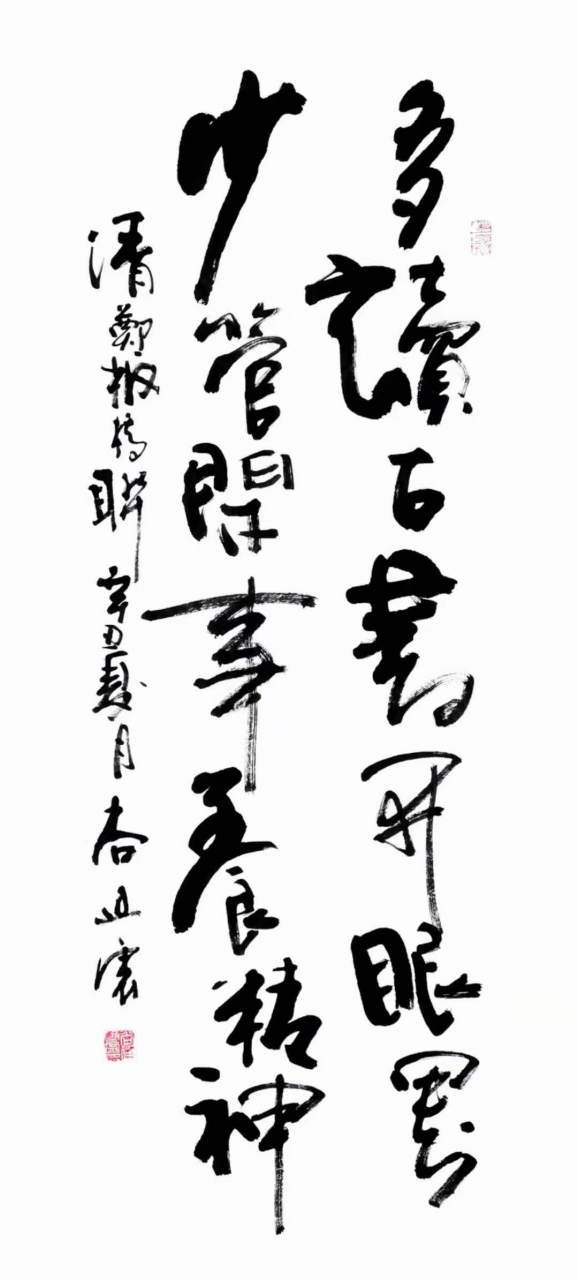 多讀古書開眼界
少管閒事養精神
清鄭板橋聯 辛丑夏月 杏